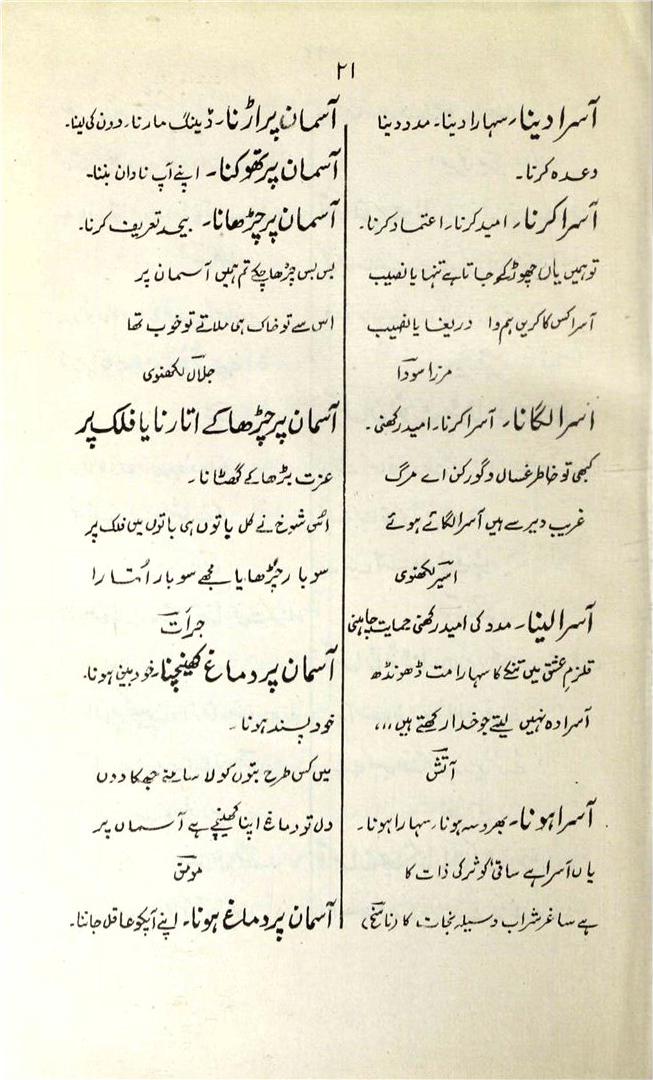 ۲۱
آسرا دینا۔ سہارا دینا۔ مدد دینا
وعدہ کرنا۔
آسرا کرنا۔ امید کرنا۔ اعتماد کرنا۔
تو ہمیں یاں چھوڑ کے جاتا ہے تنہا یا نصیب
آسرا کس کا کریں ہم وا دریغا یا نصیب
مرزا سودا
آسرا لگانا۔ آسرا کرنا۔ امید رکھنی۔
کبھی تو خاطر غسال و گور کن اے مرگ
غریب دیر سے ہیں آسرا لگائے ہوئے
اسیر لکھنوی
آسرا لینا۔ مدد کی امید رکھنی حمایت چاہنی
قلزم عشق میں تنکے کا سہارا مت ڈھونڈھ
آسرا وہ نہیں لیتے جو خدا رکھتے ہیں ،،،
آتش
آسرا ہونا۔ بھروسہ ہونا۔ سہارا ہونا۔
یاں آسرا ہے ساقیٔ کوثر کی ذات کا
ہے ساغر شراب وسیلہ نجات کا (ناسخ)
آسمان پر اڑنا۔ ڈینگ مارنا۔ دون کی لینا۔
آسمان پر تھوکنا۔ اپنے آپ نادان بننا۔
آسمان پر چڑھانا۔ بیحد تعریف کرنا۔
بس بس چڑھا چکے تم ہمیں آسمان پر
اس سے تو خاک ہی ملاتے تو خوب تھا
جلال لکھنوی
آسمان پر چڑھا کے اتارنا یا فلک پر
عزت بڑھا کے گھٹانا۔
اُس شوخ نے کل باتوں ہی باتوں میں فلک پر
سو بار چڑھایا مجھے سو بار اُتارا
جرأت
آسمان پر دماغ کھینچنا۔ خود بین ہونا۔
خود پسند ہونا۔
میں کس طرح بتوں کو لا سامنے جھکا دوں
دل تو دماغ اپنا کھینچے ہے آسماں پر
مومن
آسمان پر دماغ ہونا۔ اپنے آپکو عاقل جاننا۔